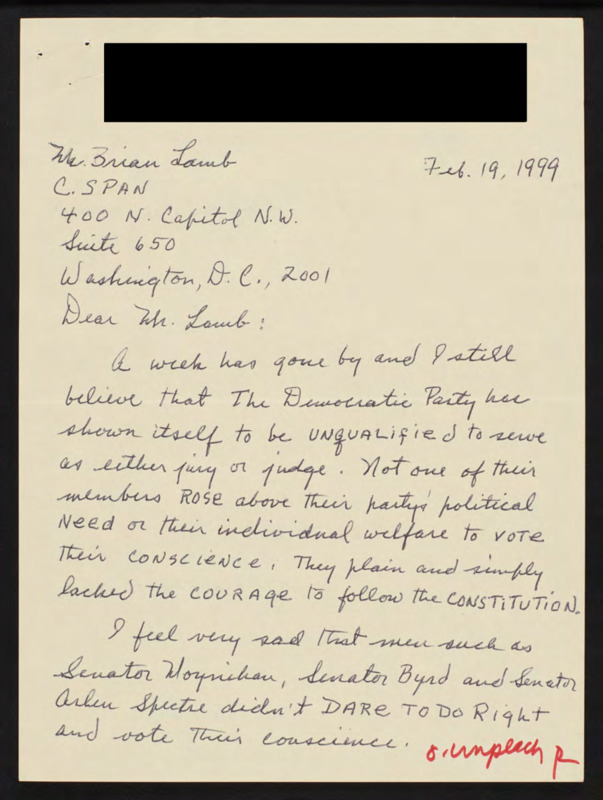 Mr. Brian Lamb
Feb. 19, 1999
C. SPAN
400 N. Capitol N.W.
Suite 650
Washington, D.C., 2001
Dear Mr. Lamb:
A week has gone by and I still
believe that The Democratic Party has
shown itself to be UNQUALiFied to serve
as either jury or judge. Not one of their
members ROSE above their party's political
NeeD or their individual welfare to VOTE
their CONSCIENCE. They plain and simply
lacked the COURAGE to follow the CONSTiTUTiON.
I feel very sad that men such as
Senator Moynihan, Senator Byrd and Senator
Arlen Spectre didn't DARE TO DO RigHT
and vote their conscience.
impeach